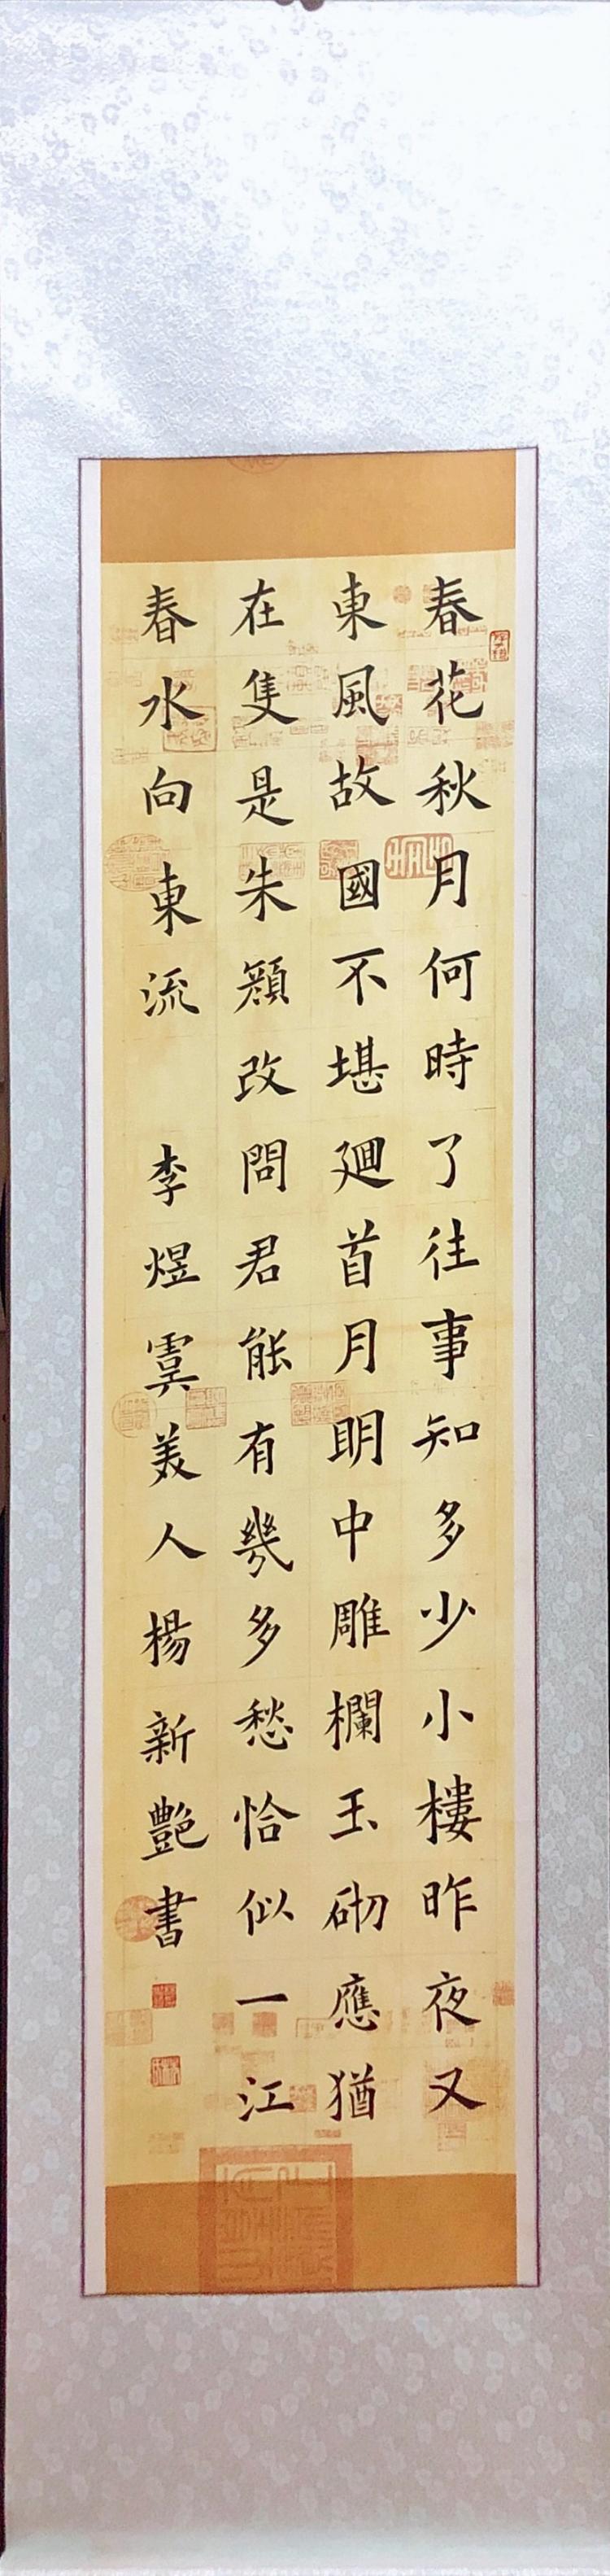 春花秋月何時了往事知多少小樓昨夜又
東風故國不堪廻首月明中雕欄玉砌應猶
在隻是朱顔改問君能有幾多愁恰似一江
春水向東流 李煜虞美人楊新艷書